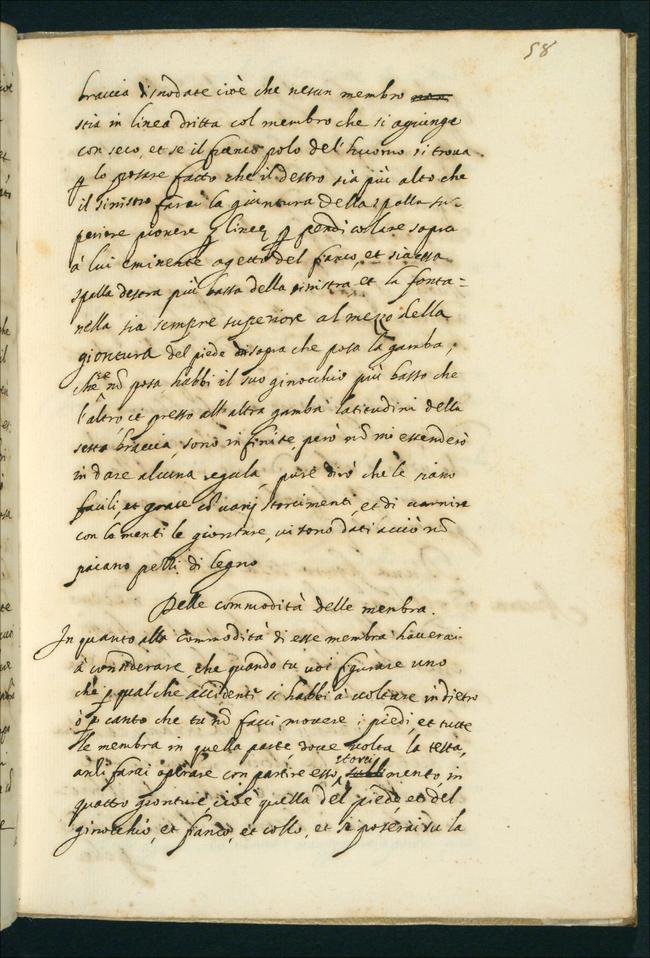 58
braccia disnodate cioè che nesun membro non
stia in linea dritta col membro che si agiunge
con seco, et se il fianco polo del'huomo si trova
p lo posare fatto che il destro sia più alto che
il sinistro farai la giuntura della spalla su-
periore piovere p linea p pendicolare sopra
à lui eminente agetto del fianco, et sia essa
spalla destra più bassa della sinistra, et la fonta=
nella sia sempre superiore al mezzo della
giontura del piede disopra che posa la gamba,
che nõ posa habbi il suo ginocchio più basso che
l'altro et presso all'altra gamba latitudini della
testa braccia, sono infinite, però nõ mi estenderò
in dare alcuna regula, pure dirò che le siano
facili, et grate cõ varij storcimenti, et di
con la menti le gionture, vi sono dati acciò nõ
paiano pezzi di legno
Delle commodità delle menbra.
In quanto alla commodità di esse membra haverai
à considerare, che quando tu voi figurare uno
che p qualche accidenti si habbi à voltare indietro
ò p canto che tu nõ facci movere i piedi, et tutte
le membra in quella parte, dove volta la testa,
anzi farai operare con partire esso storcimento, in
quattro gionture, cioè quella del piede, et del
ginocchio, et fianco, et collo, et se poserai su la